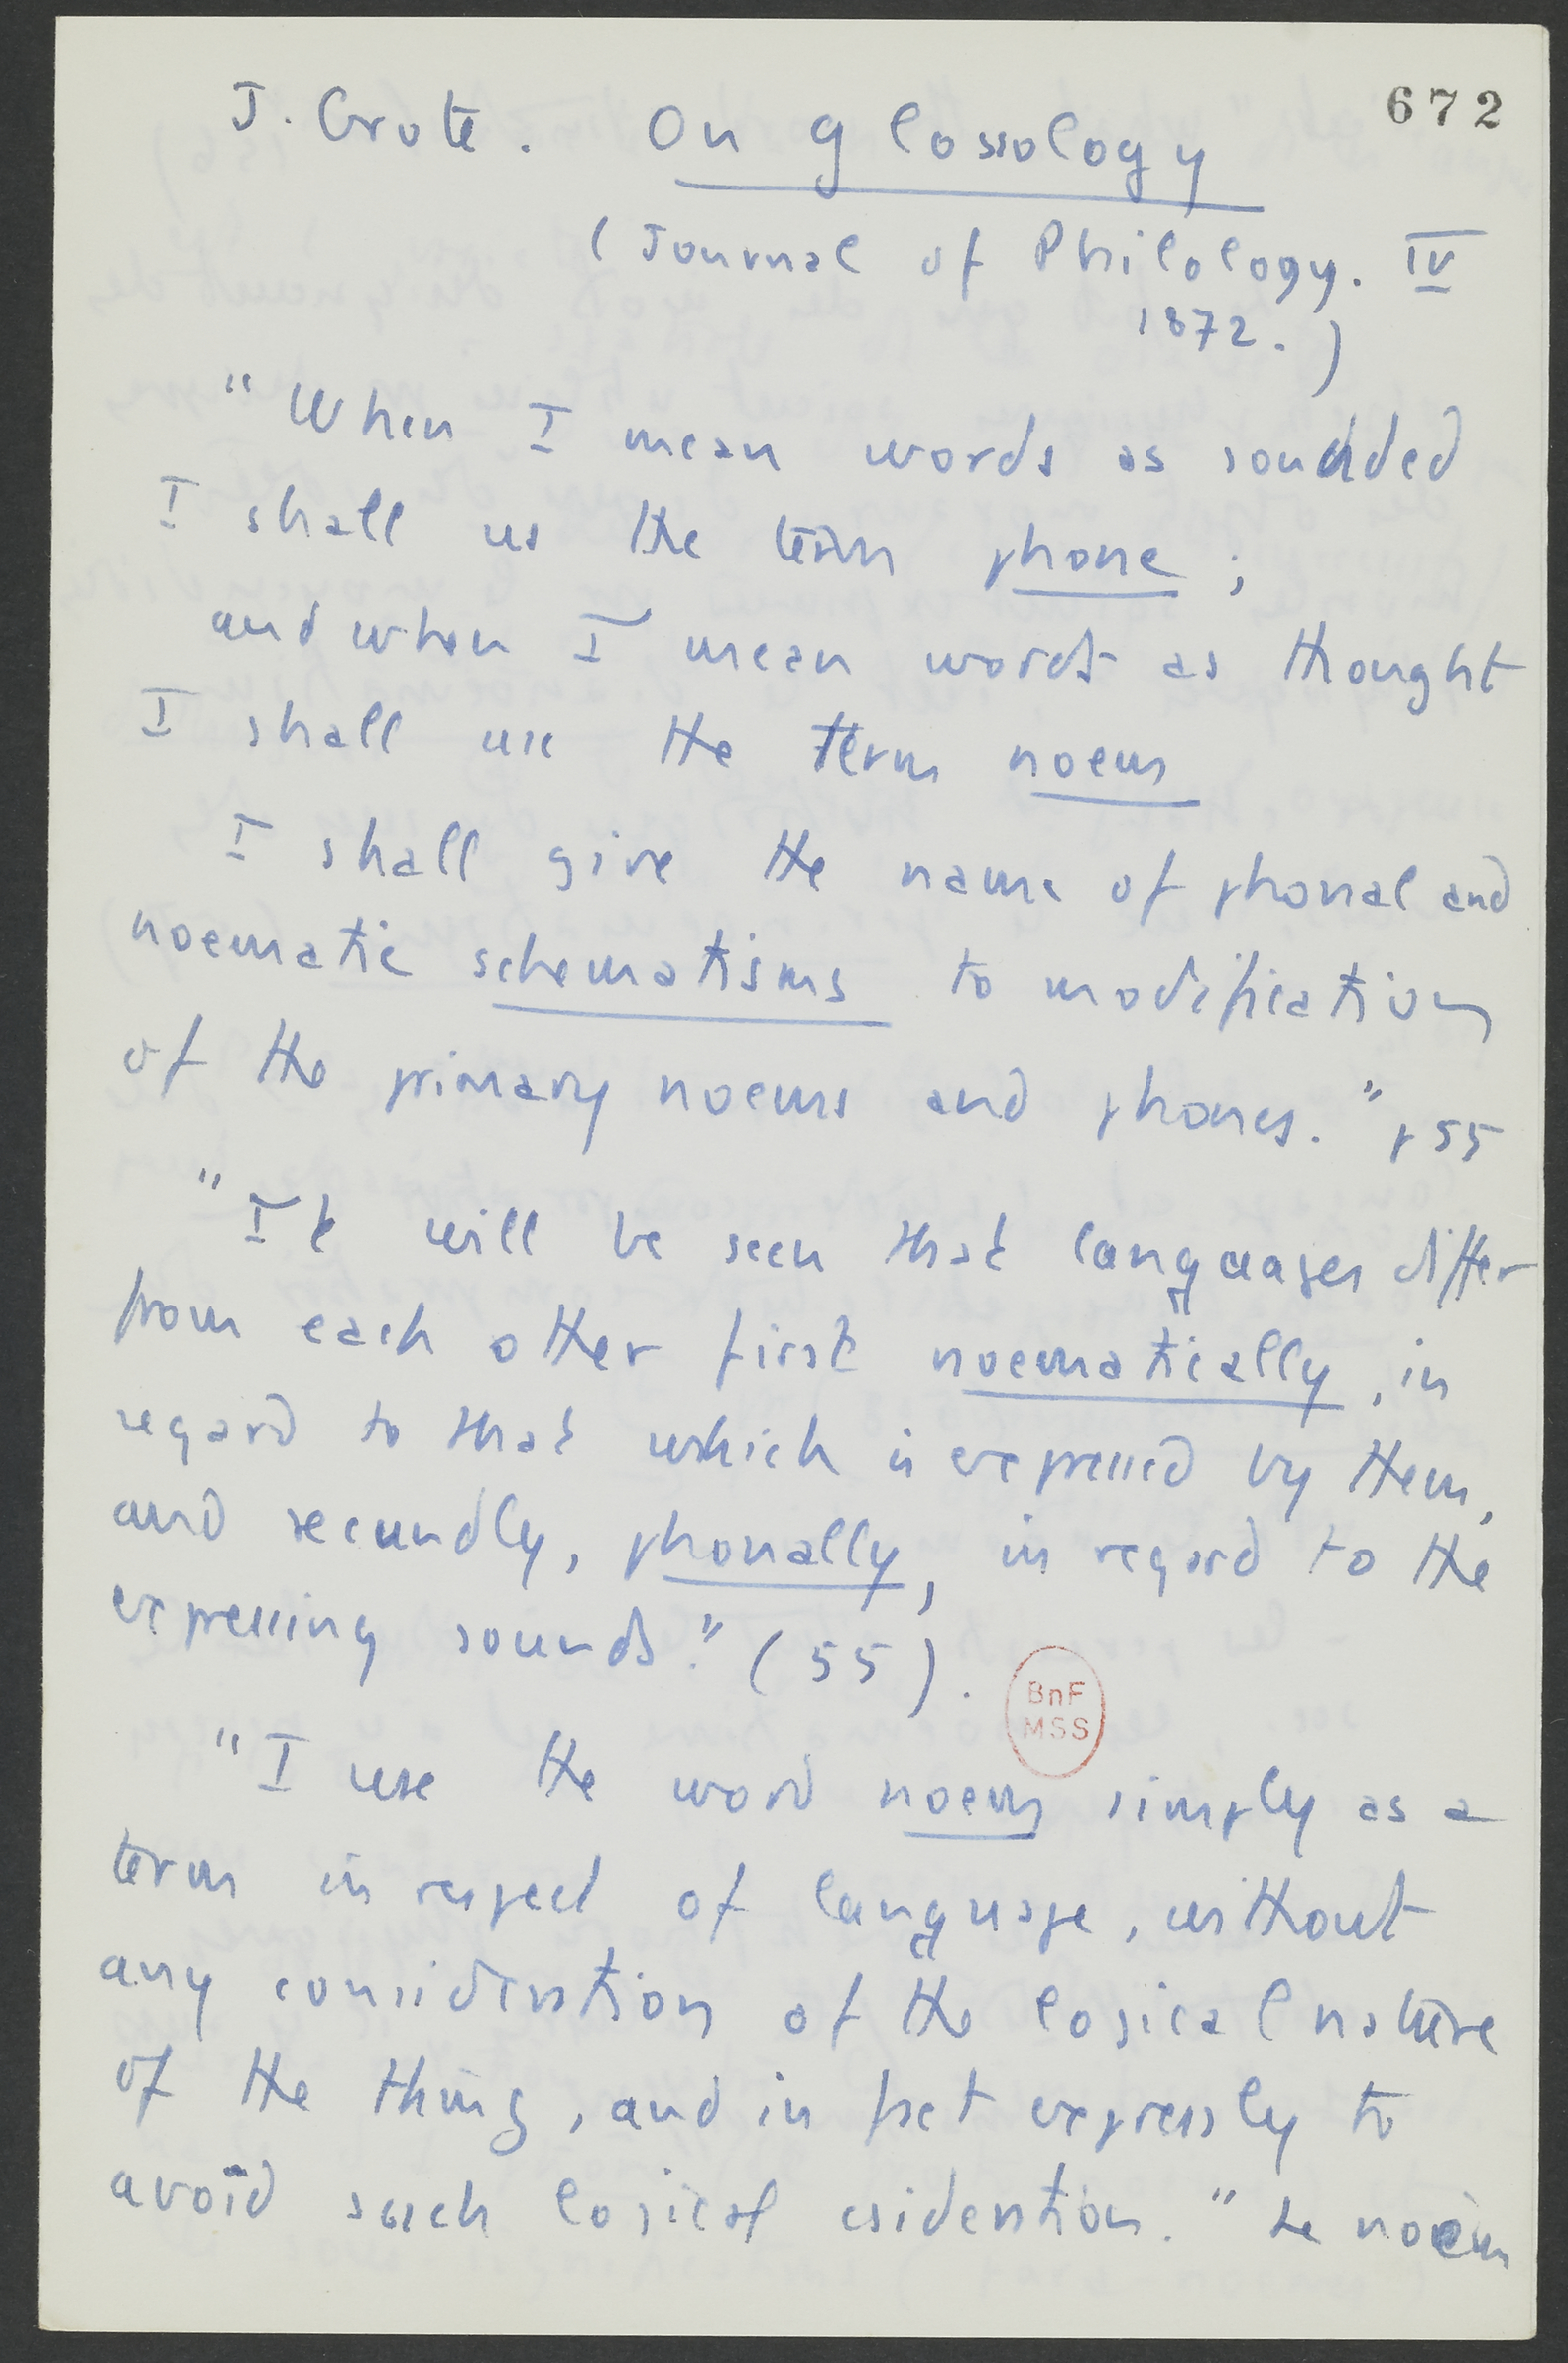 672
J. Grote. On glossology
(Journal of Philology. IV
1872.)
"When I mean words as sounded
I shall us the term phone ;
and when I mean words as thought
I shall use the term noem
I shall give the name of phonal and
noematic schematisms to modification
of the primary noems and phones." p 55
"It will be seen that languages differ
from each other first noematically, in
regard to that which is expressed by them,
and secundly, phonally, in regard to the
expressing sounds." (55).
BnF
MSS
"I use the word noem simply as a
term in respect of language, without
any consideration of the logical nature
of the thing, and in fact expressly to
avoid such logical csideration." Le noem